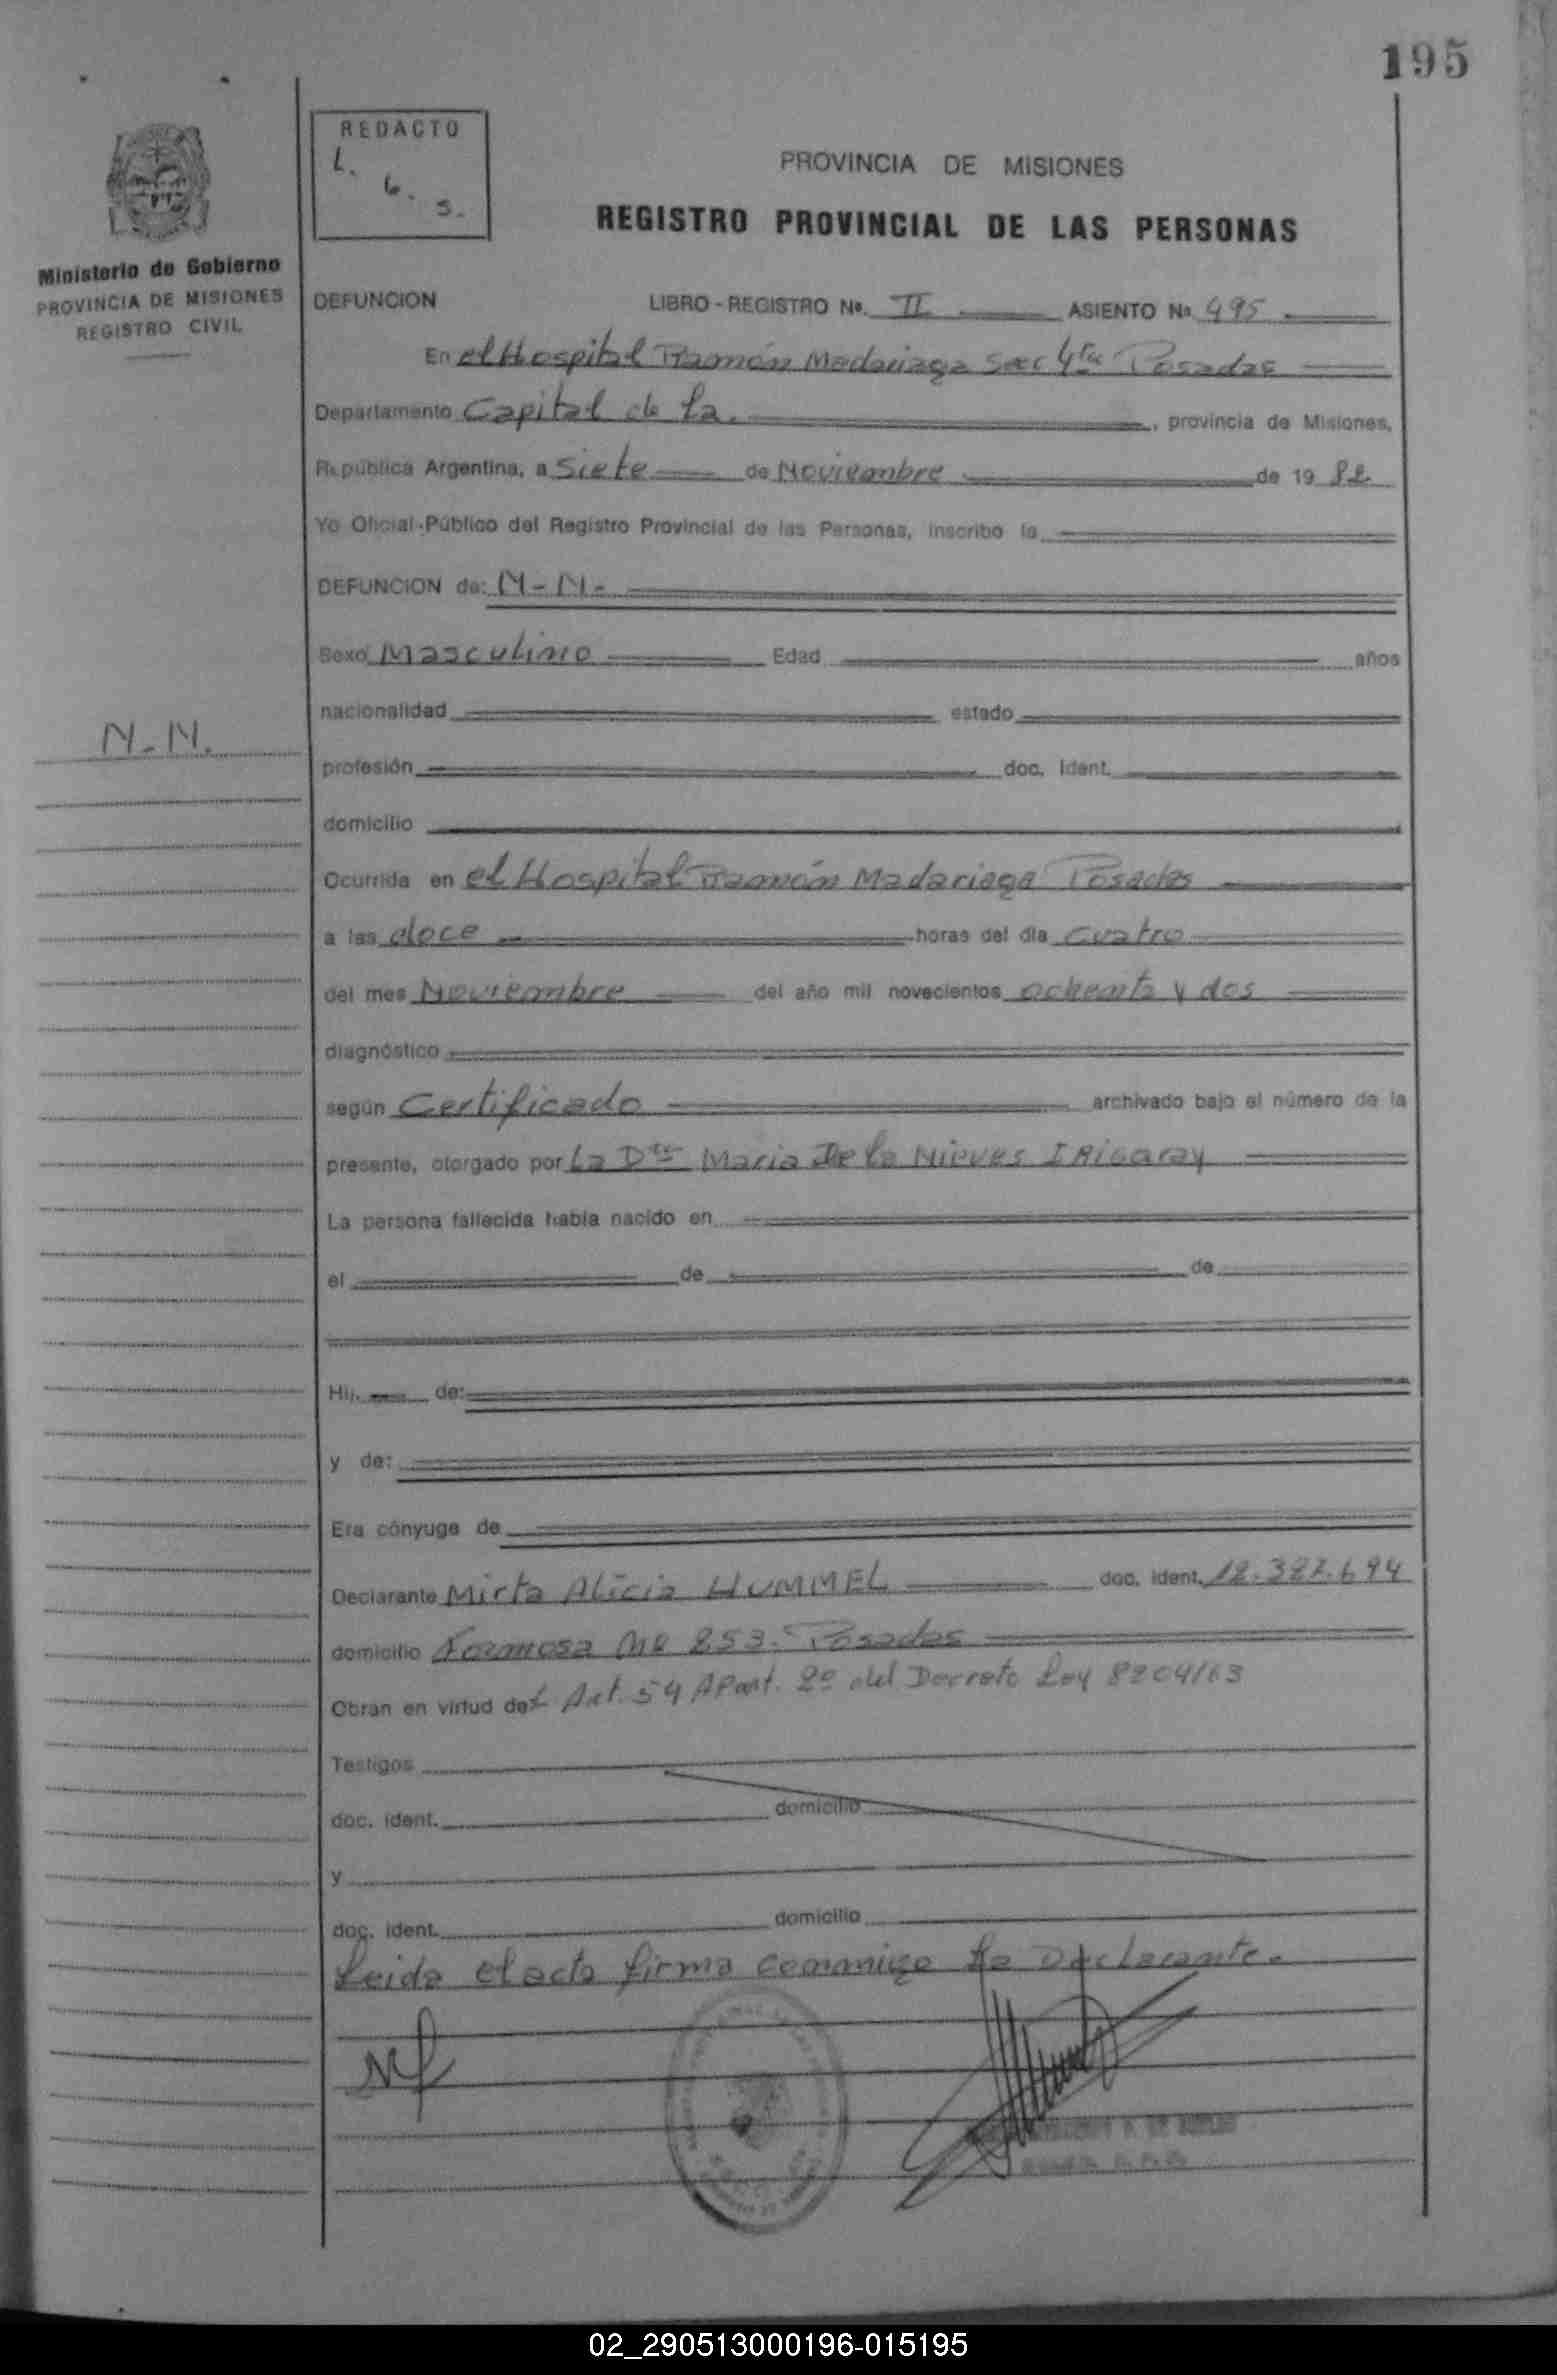 195
REDACTO
L. G. S.
PROVINCIA DE MISIONES
REGISTRO PROVINCIAL DE LAS PERSONAS
Ministerio de Gobierno
PROVINCIA DE MISIONES
REGISTRO CIVIL
DEFUNCION LIBRO - REGISTRO Nº. II ASIENTO Nº 495
En el Hospital Ramón Madariaga Secc 4ta Posadas
Departamento Capital de la, provincia de Misiones,
República Argentina, a Siete de Noviembre de 19 82
Yo Oficial Público del Registro Provincial de las Personas, inscribo la
DEFUNCION de: N-N-
Sexo Masculino Edad años
nacionalidad estado
N-N.
profesión doc. ident.
domicilio
Ocurrida en el Hospital Ramón Madariaga Posadas
a las doce horas del día cuatro
del mes Noviembre del año mil novecientos ochenta y dos
diagnóstico
según Certificado archivado bajo el número de la
presente, otorgado por La Dra Maria De la Nieves IRigaray
La persona fallecida había nacido en
el de de
Hij. de:
y de:
Era cónyuge de
Declarante Mirta Alicia HUMMEL doc. ident. 12.387.694
domicilio Formosa Nº 253. Posadas
Obran en virtud del Art. 54 Apart. 2º del Decreto Ley 8204/63
Testigos
doc. ident. domicilio
y
doc. ident. domicilio
Leida el acta firma conmigo la Declarante.
02_290513000196-015195